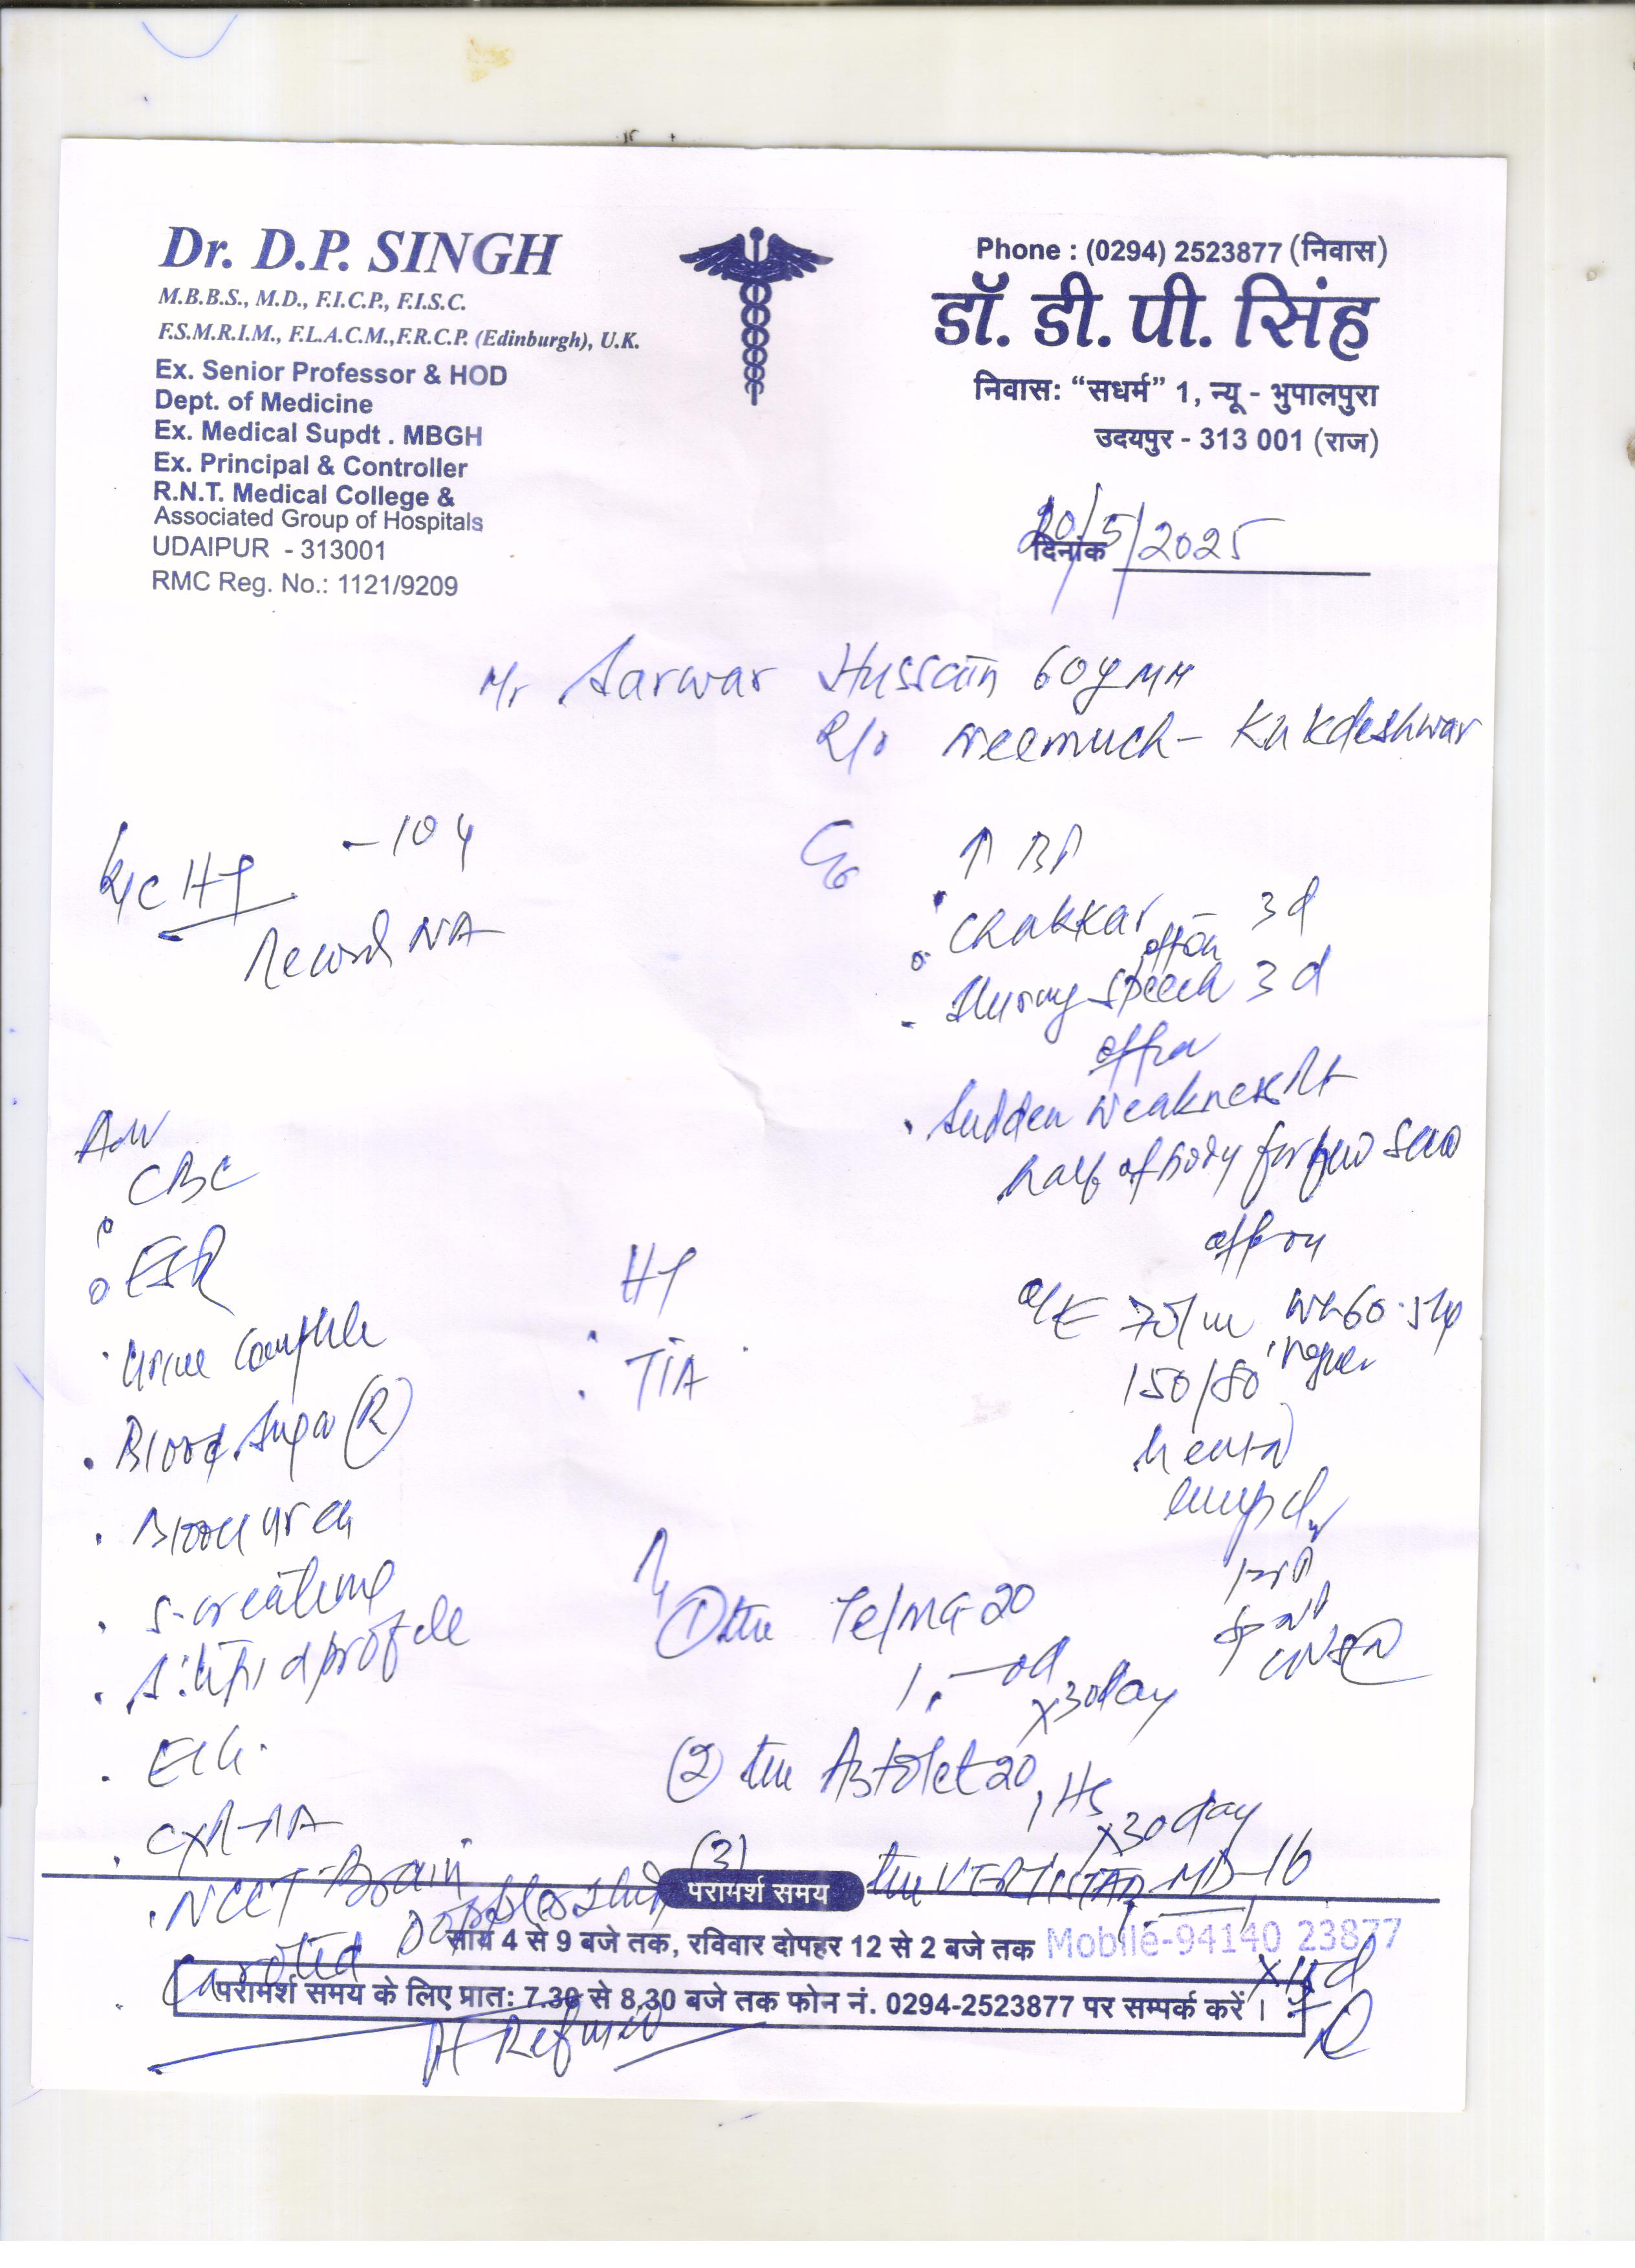 Dr. D.P. SINGH
M.B.B.S., M.D., F.I.C.P., F.I.S.C.
F.S.M.R.I.M., F.L.A.C.M.,F.R.C.P. (Edinburgh), U.K.
Ex. Senior Professor & HOD
Dept. of Medicine
Ex. Medical Supdt . MBGH
Ex. Principal & Controller
R.N.T. Medical College &
Associated Group of Hospitals
UDAIPUR - 313001
RMC Reg. No.: 1121/9209
Phone : (0294) 2523877 (निवास)
डॉ. डी. पी. सिंह
निवास: “सधर्म” 1, न्यू - भुपालपुरा
उदयपुर - 313 001 (राज)
दिनांक 20/5/2025
Mr Sarwar Hussain 60y
R/o Neemuch - Kukdeshwar
K/c HT - 10 y
Record NA
↑ BP
Chakkar 3 d
speech 3 d
Sudden weakness Rt
half of body for few
O/E 75/m
150/80
Adv
CBC
ESR
Urine Complete
Blood Sugar (R)
Blood urea
S. creatinine
S. lipid profile
ECG
CXR-PA
NCCT Brain
Carotid Doppler Study
Pt Refused
HT
TIA
① Telma-20
1 - od
x 30 day
② Astolet 20
1 Hs
x 30 day
(3) VERTISTAR MD-16
परामर्श समय
सायं 4 से 9 बजे तक, रविवार दोपहर 12 से 2 बजे तक
Mobile-94140 23877
परामर्श समय के लिए प्रातः 7.30 से 8.30 बजे तक फोन नं. 0294-2523877 पर सम्पर्क करें ।